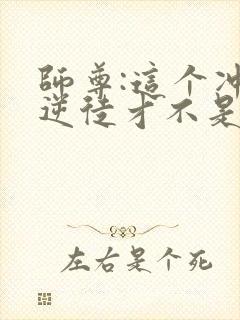 師尊:這个冲
逆徒才不是
左右是个死